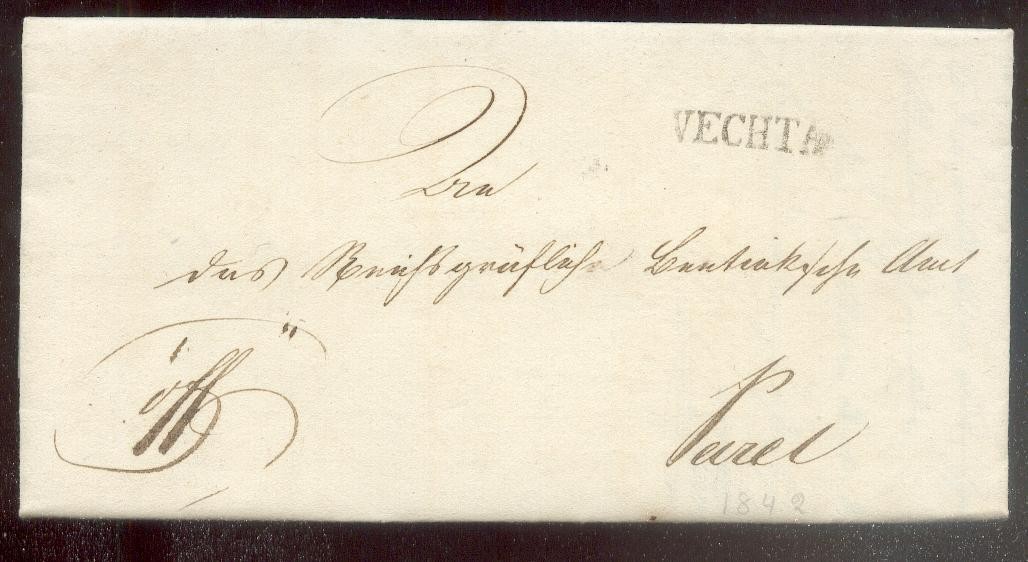 VECHTA
An
das Reichsgräfliche Bentinksche Amt
öff
Varel
1842